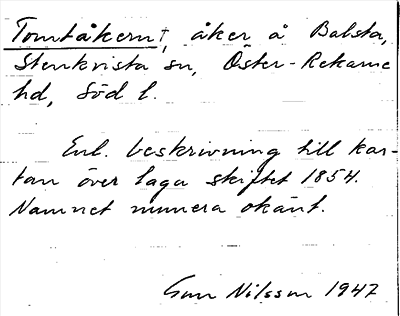 Tomtåkern†, åker å Balsta,
Stenkvista sn, Öster-Rekarne
hd, Söd l.
Enl. beskrivning till kar-
tan över laga skiftet 1854.
Namnet numera okänt.
Gun Nilsson 1947